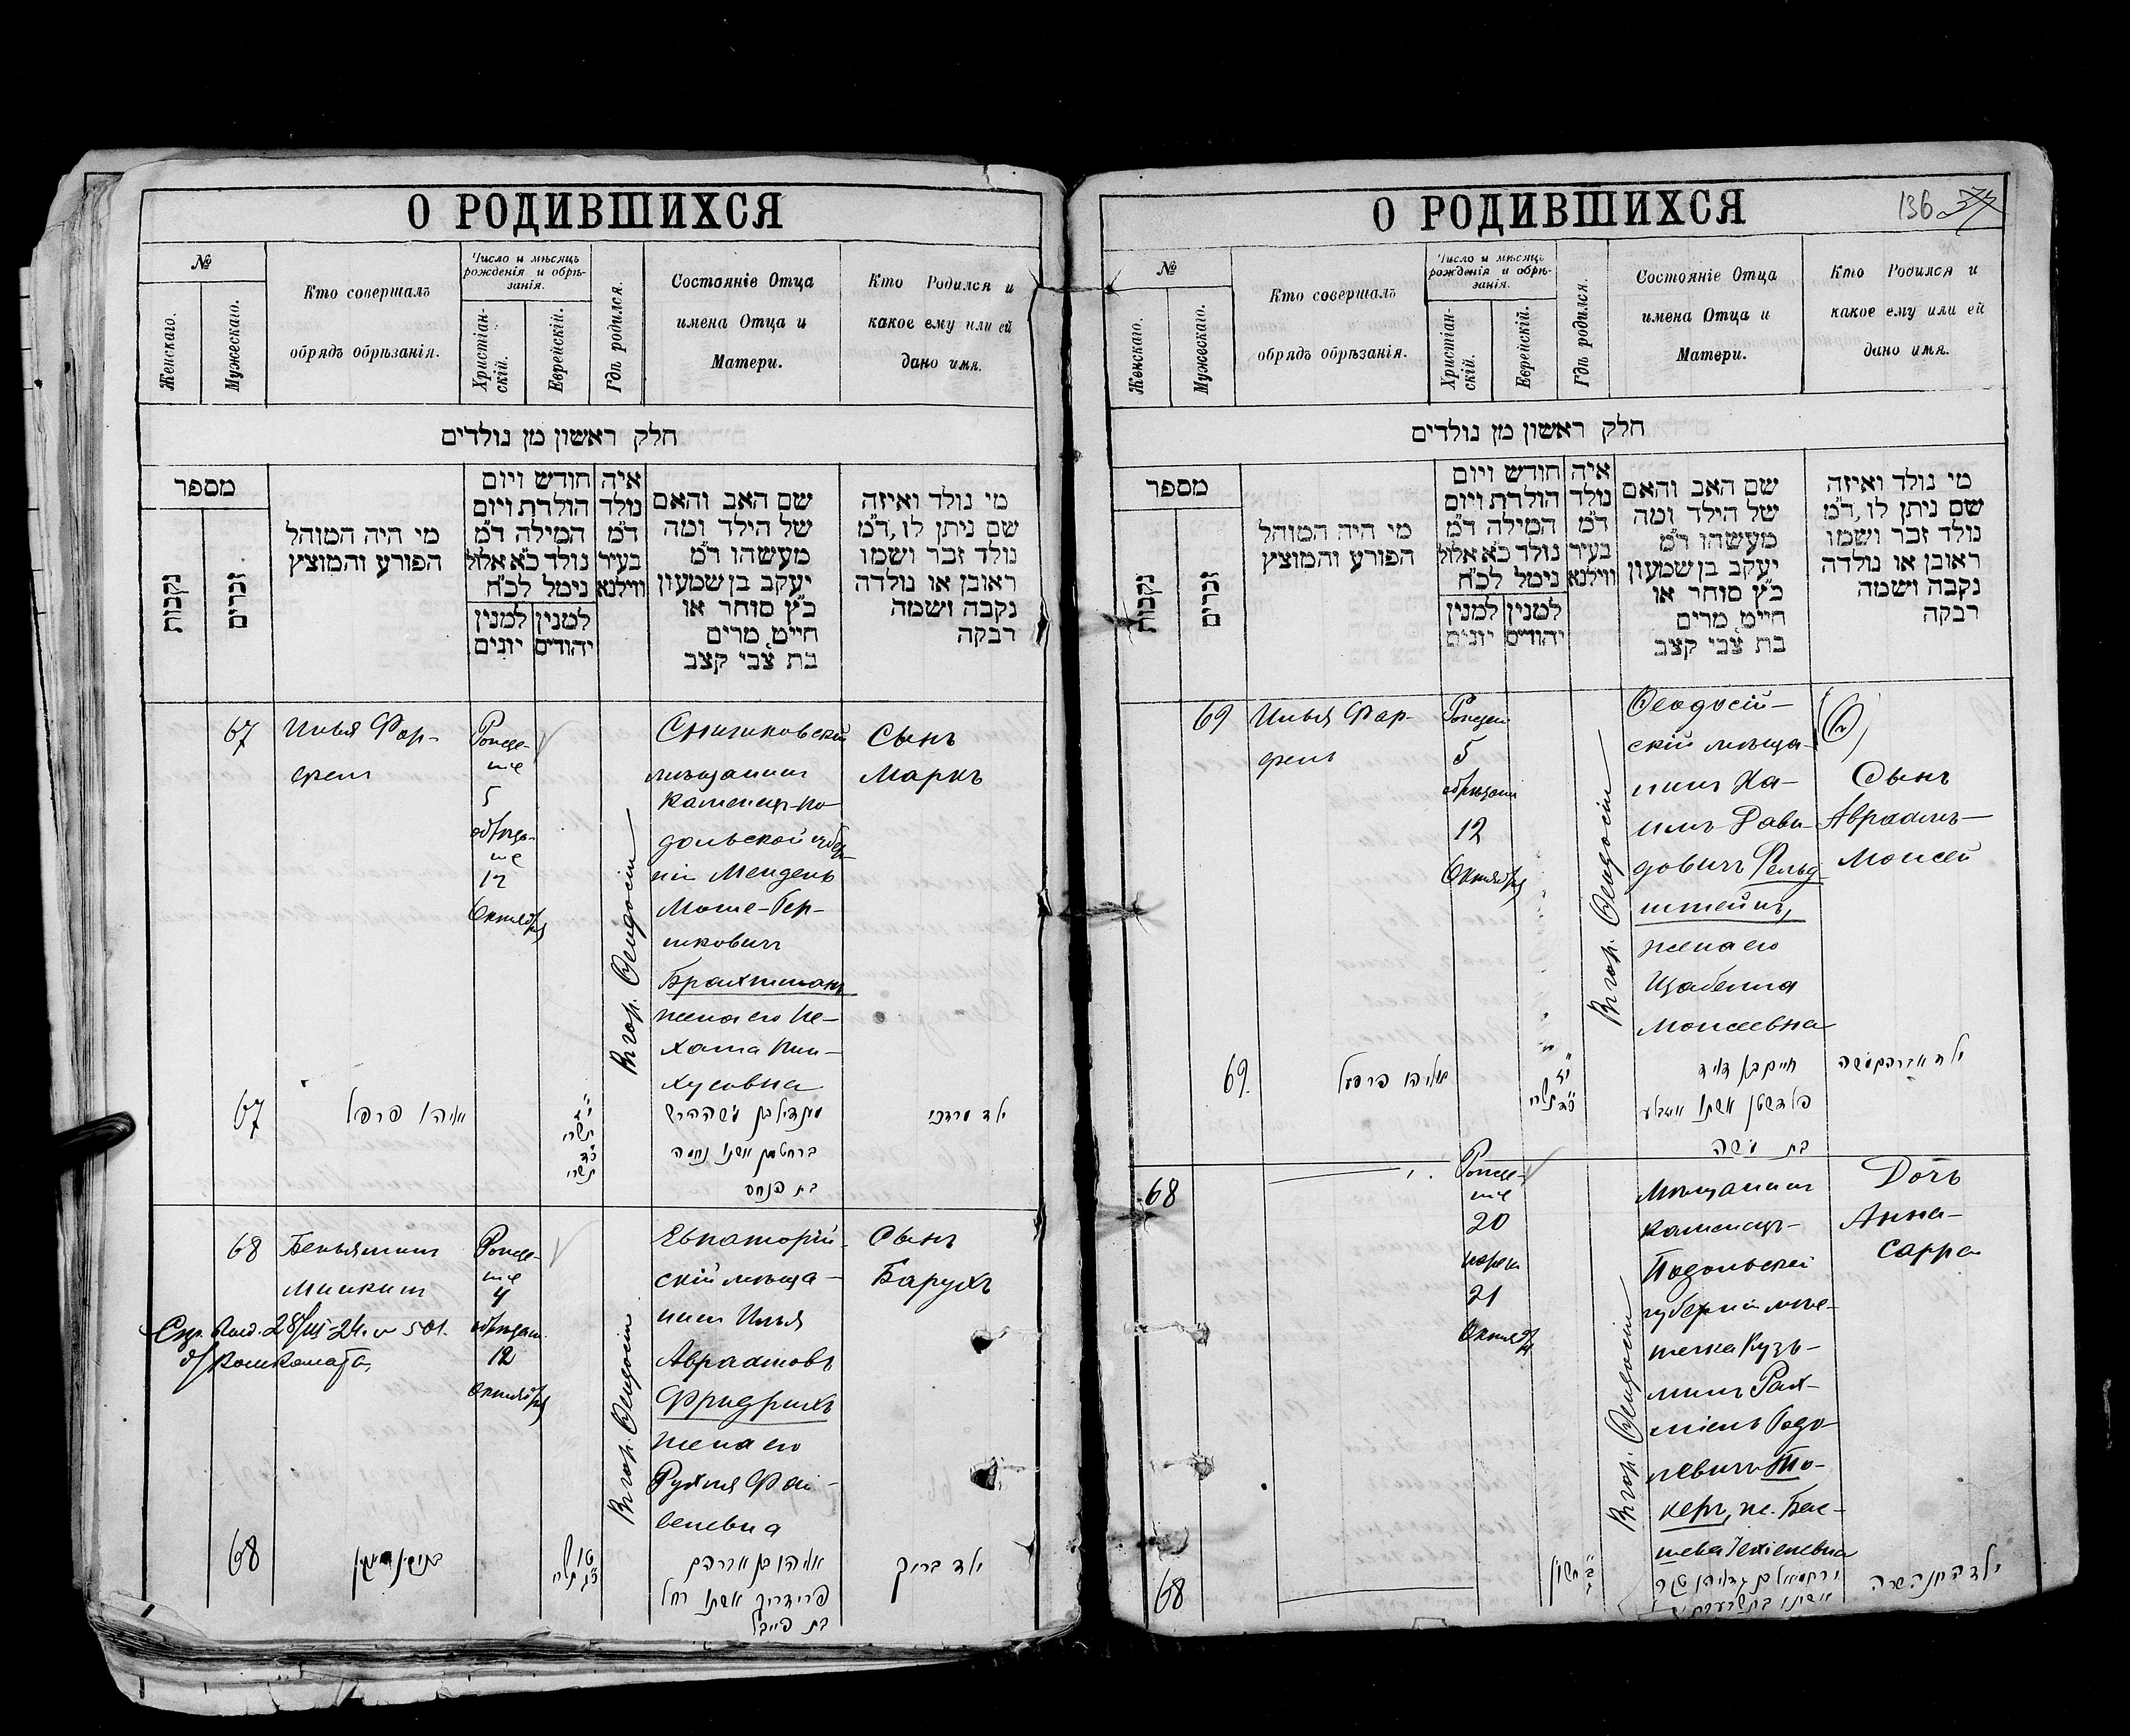 О РОДИВШИХСЯ
№
Женскаго.
Мужескаго.
Кто совершалъ
обрядъ обрѣзанія.
Число и мѣсяцъ
рожденія и обрѣ-
занія.
Христіан-
скій.
Еврейскій.
Гдѣ родился.
Состояніе Отца
имена Отца и
Матери.
Кто Родился и
какое ему или ей
дано имя.
חלק ראשון מן נולדים
מספר
נקבות
זכרים
מי היה המוהל
הפורע והמוצץ
חודש ויום
הולדת ויום
המילה ד"מ
נולד כ"א אלול
נימל לכ"ח
למנין
יהודים
למנין
יונים
איה
נולד
ד"מ
בעיר
ווילנא
שם האב והאם
של הילד ומה
מעשהו ד"מ
יעקב בן שמעון
כ"ץ סוחר או
חייט מרים
בת צבי קצב
מי נולד ואיזה
שם ניתן לו, ד"מ
נולד זכר ושמו
ראובן או נולדה
נקבה ושמה
רבקה
67
Илья Фар-
фель
Рожде-
ніе
5
обрѣза-
ніе
12
Октября
Въ гор. Ѳеодосіи
мѣщанинъ
Каменецъ-По-
дольской губер-
ніи Мендель
Моше-Гер-
шковичъ
Брахтманъ
жена его Не-
хама Пин-
хусовна
Сынъ
Маркъ
67
אליהו פרפל
תשרי
כ"ד
תשרי
מענדיל בן משה הירש
ברחטמן אשתו נחמה
בת פנחס
ילד מרדכי
68
Беньяминъ
Минкинъ
Рожде-
ніе
4
обрѣзан.
12
Октября
Въ гор. Ѳеодосіи
Евпаторій-
скій мѣща-
нинъ Илья
Аврамовъ
Фридрихъ
жена его
Рухля Фай-
велевна
Сынъ
Барухъ
68
אליהו בן אברהם
פרידריך אשתו רחל
בת פייבל
ילד ברוך
О РОДИВШИХСЯ
136
№
Женскаго.
Мужескаго.
Кто совершалъ
обрядъ обрѣзанія.
Число и мѣсяцъ
рожденія и обрѣ-
занія.
Христіан-
скій.
Еврейскій.
Гдѣ родился.
Состояніе Отца
имена Отца и
Матери.
Кто Родился и
какое ему или ей
дано имя.
חלק ראשון מן נולדים
מספר
נקבות
זכרים
מי היה המוהל
הפורע והמוצץ
חודש ויום
הולדת ויום
המילה ד"מ
נולד כ"א אלול
נימל לכ"ח
למנין
יהודים
למנין
יונים
איה
נולד
ד"מ
בעיר
ווילנא
שם האב והאם
של הילד ומה
מעשהו ד"מ
יעקב בן שמעון
כ"ץ סוחר או
חייט מרים
בת צבי קצב
מי נולד ואיזה
שם ניתן לו, ד"מ
נולד זכר ושמו
ראובן או נולדה
נקבה ושמה
רבקה
69
Илья Фар-
фель
Рожден
5
обрѣзан
12
Октября
Въ гор. Ѳеодосіи
Ѳеодосій-
скій мѣща-
нинъ Ха-
имъ Дави-
довичъ Фельд-
штейнъ,
жена его
Изабелла
Моисеевна
Сынъ
Авраамъ-
Моисей
69
אליהו פרפל
חיים בן דוד
פלדשטן אשתו
בת משה
ילד אברהם משה
68
Рожде-
ніе
20
нареч
21
Октября
Въ гор. Ѳеодосіи
Мѣщанинъ
Каменецъ-
Подольской
губерніи мѣс-
течка Кузь-
минъ Рах-
міель Годо-
левичъ То-
керъ, ж. Бас-
шева Іехіелевна
Дочь
Анна-
Сарра
68
חשון
ירחמיאל בן גדליהו טקר
אשתו בת שבע בת
ילדה חנה שרה